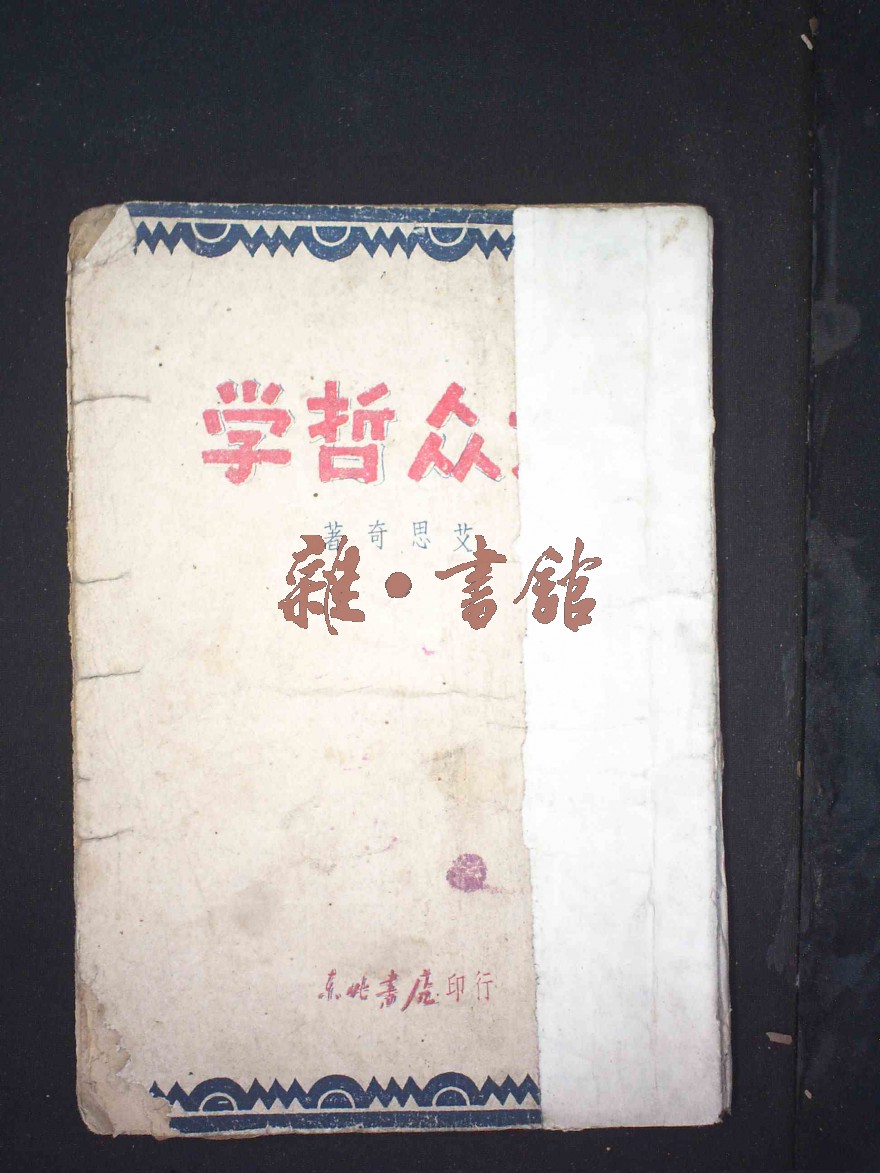 众哲学
艾思奇著
雜·書館
东北書店印行